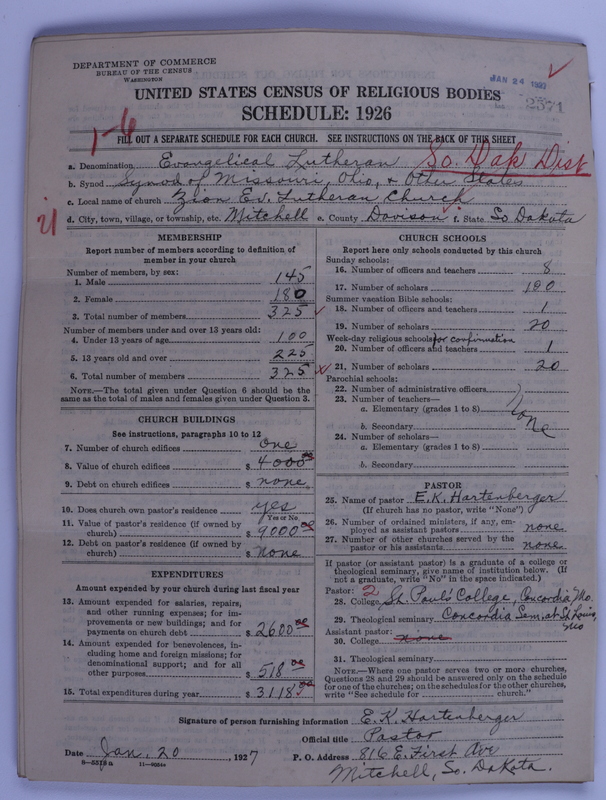 DEPARTMENT OF COMMERCE
BUREAU OF THE CENSUS
WASHINGTON
JAN 24 1927
2371
UNITED STATES CENSUS OF RELIGIOUS BODIES
SCHEDULE: 1926
1-6
FILL OUT A SEPARATE SCHEDULE FOR EACH CHURCH. SEE INSTRUCTIONS ON THE BACK OF THIS SHEET
a. Denomination Evangelical Lutheran So. Dak Dist
b. Synod Synod of Missouri, Ohio, & Other States
c. Local name of church Zion Ev. Lutheran Church
d. City, town, village, or township, etc. Mitchell e. County Davison f. State So Dakota
MEMBERSHIP
Report number of members according to definition of
member in your church
Number of members, by sex:
1. Male 145
2. Female 180
3. Total number of members 325
Number of members under and over 13 years old:
4. Under 13 years of age 100
5. 13 years old and over 225
6. Total number of members 325
NOTE.—The total given under Question 6 should be the
same as the total of males and females given under Question 3.
CHURCH BUILDINGS
See instructions, paragraphs 10 to 12
7. Number of church edifices One
8. Value of church edifices $ 4000 00
9. Debt on church edifices $ none
10. Does church own pastor's residence yes
Yes or No
11. Value of pastor's residence (if owned by
church) $ 9000 00
12. Debt on pastor's residence (if owned by
church) $ None
EXPENDITURES
Amount expended by your church during last fiscal year
13. Amount expended for salaries, repairs,
and other running expenses; for im-
provements or new buildings; and for
payments on church debt $ 2600 00
14. Amount expended for benevolences, in-
cluding home and foreign missions; for
denominational support; and for all
other purposes $ 518 00
15. Total expenditures during year $ 3118 00
CHURCH SCHOOLS
Report here only schools conducted by this church
Sunday schools:
16. Number of officers and teachers 8
17. Number of scholars 120
Summer vacation Bible schools:
18. Number of officers and teachers 1
19. Number of scholars 20
Week-day religious schools: for confirmation
20. Number of officers and teachers 1
21. Number of scholars 20
Parochial schools:
22. Number of administrative officers
23. Number of teachers—
a. Elementary (grades 1 to 8)
b. Secondary
none
24. Number of scholars—
a. Elementary (grades 1 to 8)
b. Secondary
PASTOR
25. Name of pastor E. K. Hartenberger
(If church has no pastor, write "None")
26. Number of ordained ministers, if any, em-
ployed as assistant pastors none
27. Number of other churches served by the
pastor or his assistants none
If pastor (or assistant pastor) is a graduate of a college or
theological seminary, give name of institution below. (If
not a graduate, write "No" in the space indicated.)
Pastor: 2
28. College St. Paul's College, Concordia, Mo.
29. Theological seminary Concordia Sem. at St. Louis, Mo
Assistant pastor:
30. College none
31. Theological seminary
NOTE.—Where one pastor serves two or more churches,
Questions 28 and 29 should be answered only on the schedule
for one of the churches; on the schedules for the other churches,
write "See schedule for church."
Signature of person furnishing information E. K. Hartenberger
Official title Pastor
Date Jan. 20, 1927 P. O. Address 816 E. First Ave
11—9024
Mitchell, So. Dakota.